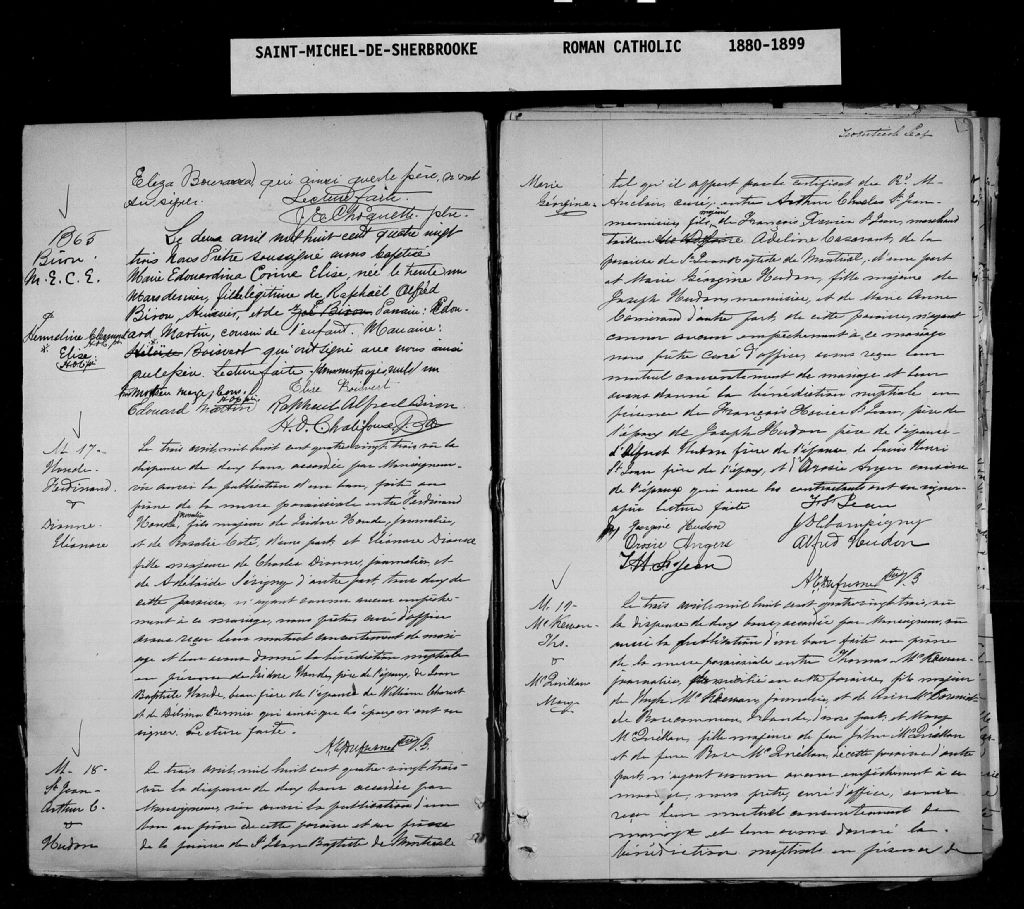 SAINT-MICHEL-DE-SHERBROOKE ROMAN CATHOLIC 1880-1899
Eliza qui ainsi que le père, n'ont
su signer. Lecture faite.
J. E. Choquette. ptre.
1865
Biron.
M. E. C. E.
Hermeline Clermont
&
Elise.
Le deux avril mil huit cent quatre vingt
trois Nous Prêtre soussigné avons baptisé
Marie Edouardina Corine Elise, née le trente un
Mars dernier, fille légitime de Raphaël Alfred
Biron, Huissier, et de Parrain: Edou-
ard Martin, cousin de l'enfant. Marraine:
Boisvert qui ont signé avec nous ainsi
que le père. Lecture faite.
Elise Boisvert
Edouard Martin Raphael Alfred Biron.
H. O. Chalifoux Ptre
M- 17-
Houde-
Ferdinand.
&
Dionne-
Eléonore
Le trois avril, mil huit cent quatre vingt trois vu la
dispense de deux bans, accordée par Monseigneur-
vu aussi la publication d'un ban, faite au
prône de la messe paroissiale entre Ferdinand
Houde, fils majeur de Isidore Houde, journalier,
et de Rosalie Coté, d'une part, et Eléonore Dionne
fille majeure de Charles Dionne, journalier, et
de Adélaïde Sévigny d'autre part, tous deux de
cette paroisse, n'ayant connu aucun empêche-
ment à ce mariage, nous prêtre, curé d'office
avons reçu leur mutuel consentement de mari-
age et leur avons donné la bénédiction nuptiale
en présence de Isidore Houde, père de l'époux, de Jean
Baptiste Houde, beau frère de l'épouse de William
et de Délima qui ainsi que les époux n'ont su
signer. Lecture faite.
A. E. Dufresne
M- 18-
St Jean-
Arthur C.
&
Hudon
Le trois avril, mil huit cent quatre vingt trois-
vu la dispense de deux bans accordée par
Monseigneur, vu aussi la publication d'un
ban au prône de cette paroisse et au prône
de la paroisse de St Jean Baptiste de Montréal
Marie
Georgine.
tel qu'il appert par le certificat du Rd M-
Auclair, curé, entre Arthur Charles St Jean-
menuisier, fils majeur de François Xavier St Jean, marchand
tailleur Adeline Casavant, de la
paroisse de St Jean Baptiste de Montréal, d'une part
et Marie Géorgine Hudon, fille majeure de
Joseph Hudon, menuisier, et de Marie Anne
d'autre part, de cette paroisse, n'ayant
connu aucun empêchement à ce mariage
nous prêtre curé d'office, avons reçu leur
mutuel consentement de mariage et leur
avons donné la bénédiction nuptiale en
présence de François Xavier St Jean, père de
l'époux, de Joseph Hudon père de l'épouse
d'Alfred Hudon frère de l'épouse, de Louis Henri
St Jean frère de l'époux, et d'Arosie Anger cousine
de l'époux qui avec les contractants ont su signer-
après lecture faite
F X St Jean
Hudon J D Champigny
Orosie Angers Alfred Hudon
L H St Jean
A. E. Dufresne
M- 19-
McKeenan-
Ths-
&
McQuillan
Mary-
Le trois avril, mil huit cent quatre vingt trois, vu
la dispense de deux bans, accordée par Monseigneur, vu
aussi la publication d'un ban faite au prône
de la messe paroissiale entre Thomas McKeenan-
journalier, domicilié en cette paroisse, fils majeur
de Hugh McKeenan, journalier, et de Ann
de Irlande, d'une part, et Mary
McQuillan, fille majeure de feu John McQuillan
et de feue Rose McQuillan, de cette paroisse d'autre
part, n'ayant connu aucun empêchement à ce
mariage, nous prêtre, curé d'office, avons
reçu leur mutuel consentement de
mariage et leur avons donné la-
bénédiction nuptiale en présence de